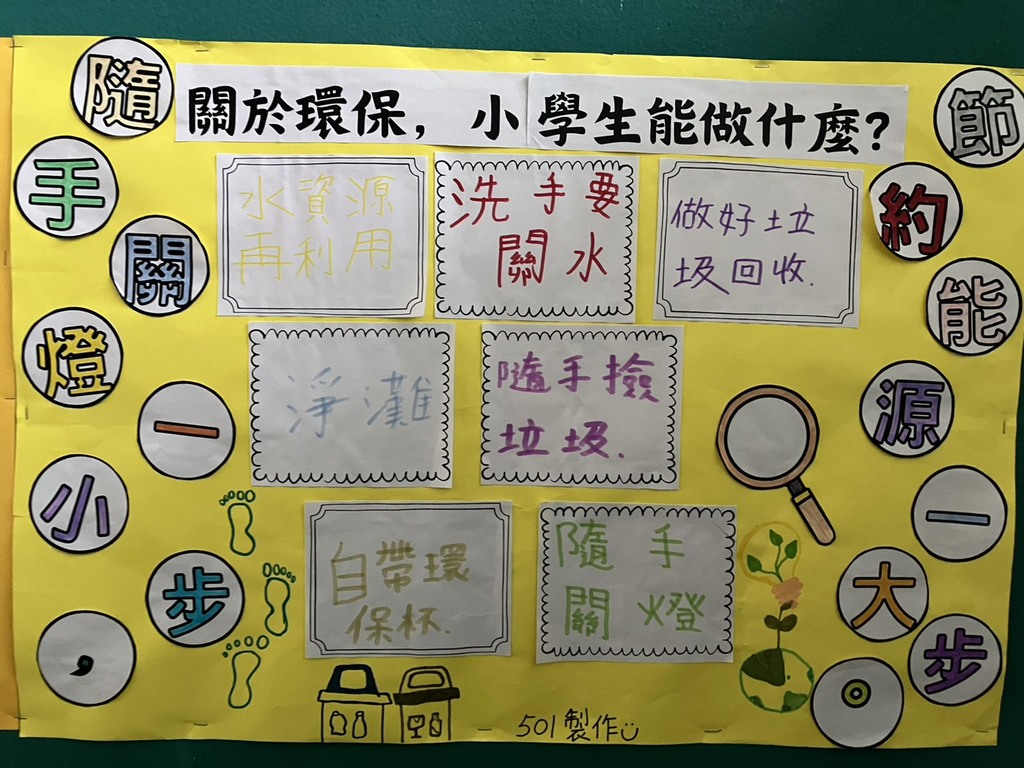 關於環保，小學生能做什麼？
隨手關燈一小步，
節約能源一大步。
水資源
再利用
洗手要
關水
做好垃
圾回收.
淨灘
隨手撿
垃圾.
自帶環
保杯.
隨手
關燈
501製作